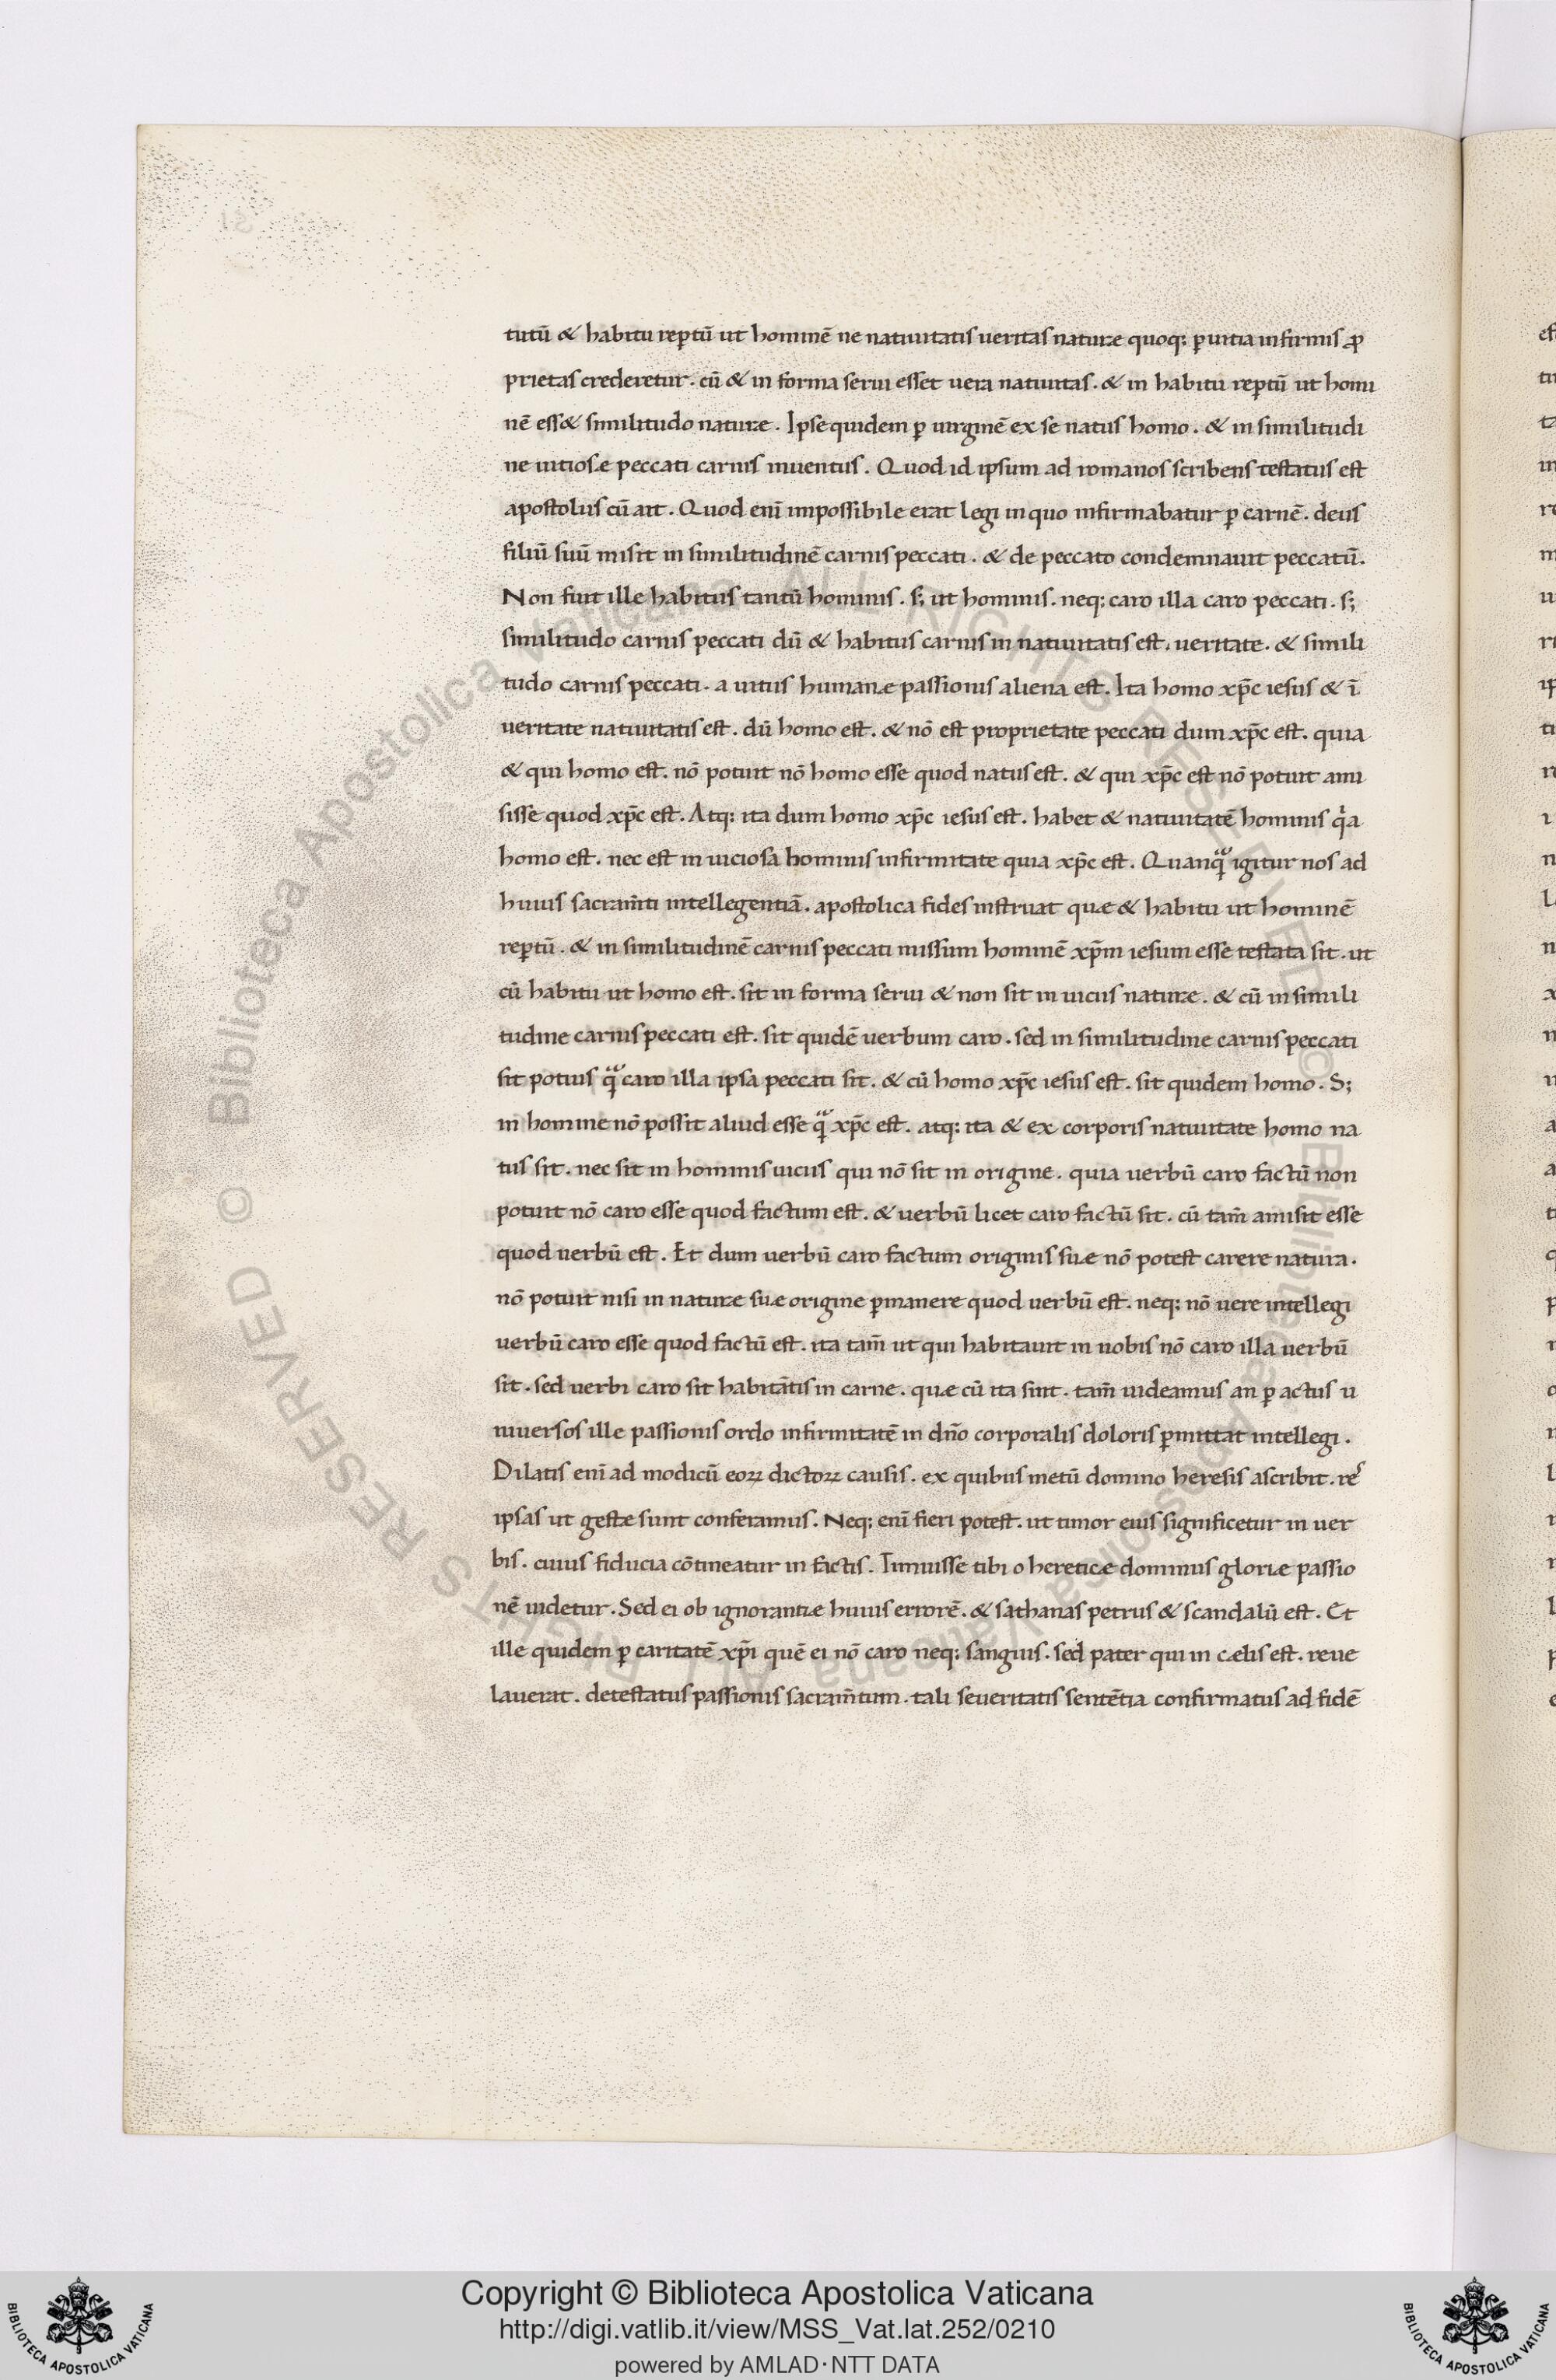 tutū & habitu rep̱tū ut hominē ne natiuitatis ueritas naturæ quoq; p̱ uitia infirmis ꝓ
prietas crederetur. cū & in forma serui esset uera natiuitas. & in habitu rep̱tū ut homi
nē ess& similitudo naturæ. Ipse quidem ꝑ uirginē ex se natus homo. & in similitudi
ne uitiosæ peccati carnis inuentus. Quod id ipsum ad romanos scribens testatus est
apostolus cū ait. Quod enī impossibile erat legi in quo infirmabatur ꝑ carnē. deus
filiū suū misit in similitudinē carnis peccati. & de peccato condemnauit peccatū.
Non fuit ille habitus tantū hominis. s; ut hominis. neq; caro illa caro peccati. s;
similitudo carnis peccati dū & habitus carnis in natiuitatis est. ueritate. & simili
tudo carnis peccati. a uitiis humanæ passionis aliena est. Ita homo xp̄c iesus & ī
ueritate natiuitatis est. dū homo est. & nō est proprietate peccati dum xp̄c est. quia
& qui homo est. nō potuit nō homo esse quod natus est. & qui xp̄c est nō potuit ami
sisse quod xp̄c est. Atq; ita dum homo xp̄c iesus est. habet & natiuitatē hominis qͥa
homo est. nec est in uiciosa hominis infirmitate quia xp̄c est. Quanqᷓ igitur nos ad
huius sacram̄ti intellegentiā. apostolica fides instruat quæ & habitu ut hominē
reꝑtū. & in similitudinē carnis peccati missum hominē xp̄m iesum esse testata sit. ut
cū habitu ut homo est. sit in forma serui & non sit in uiciis naturæ. & cū in simili
tudine carnis peccati est. sit quidē uerbum caro. sed in similitudine carnis peccati
sit potius qᷓ caro illa ipsa peccati sit. & cū homo xp̄c iesus est. sit quidem homo. S;
in homine nō possit aliud esse qᷓ xp̄c est. atq; ita & ex corporis natiuitate homo na
tus sit. nec sit in hominis uiciis qui nō sit in origine. quia uerbū caro factū non
potuit nō caro esse quod factum est. & uerbū licet caro factū sit. cū tam̄ amisit esse
quod uerbū est. Et dum uerbū caro factum originis suæ nō potest carere natura.
nō potuit nisi in naturæ suæ origine ꝑmanere quod uerbū est. neq; nō uere intellegi
uerbū caro esse quod factū est. ita tam̄ ut qui habitauit in nobis nō caro illa uerbū
sit. sed uerbi caro sit habitātis in carne. quæ cū ita sint. tam̄ uideamus an ꝑ actus u
niuersos ille passionis ordo infirmitatē in dn̄o corporalis doloris ꝑmittat intellegi.
Dilatis enī ad modicū eoꝝ dictoꝝ causis. ex quibus metū domino heresis ascribit. reˢ
ipsas ut gestæ sunt conferamus. Neq; enī fieri potest. ut timor eius significetur in uer
bis. cuius fiducia cōtineatur in factis. Timuisse tibi o hereticæ dominus gloriæ passio
nē uidetur. Sed ei ob ignorantiæ huius errorē. & sathanas petrus & scandalū est. Et
ille quidem ꝑ caritatē xp̄i quē ei nō caro neq; sanguis. sed pater qui in cælis est. reue
lauerat. detestatus passionis sacram̄tum. tali seueritatis sentētia confirmatus ad fidē
Copyright © Biblioteca Apostolica Vaticana
http://digi.vatlib.it/view/MSS_Vat.lat.252/0210
powered by AMLAD·NTT DATA
BIBLIOTECA APOSTOLICA VATICANA
BIBLIOTECA APOSTOLICA VATICANA
© Biblioteca Apostolica Vaticana ALL RIGHTS RESERVED
© Biblioteca Apostolica Vaticana ALL RIGHTS RESERVED